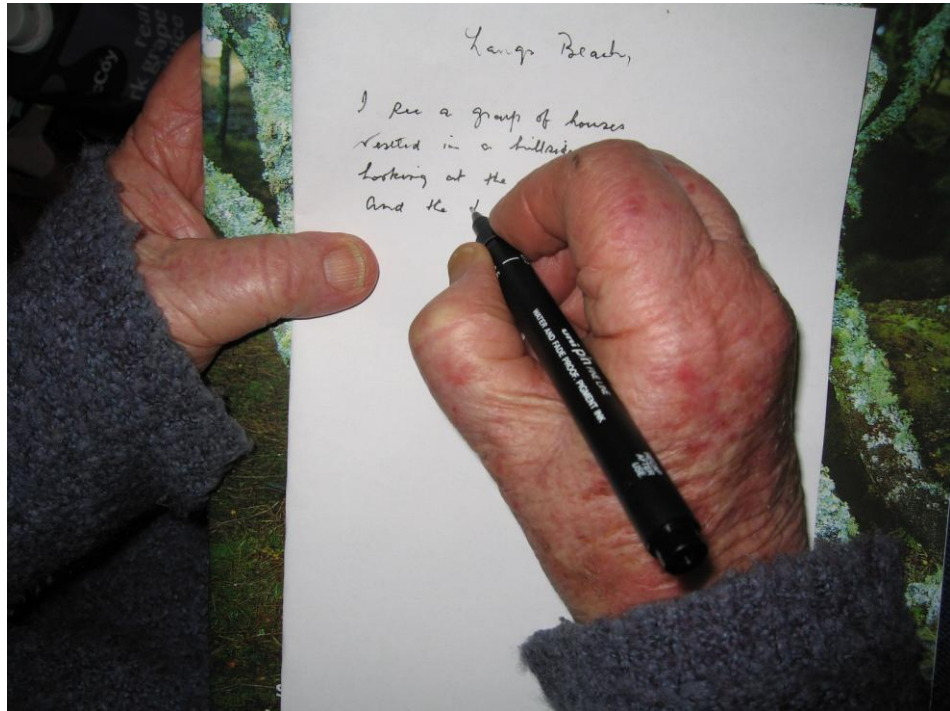 Langs Beach,
I see a group of houses
nestled in a hillside
Looking at the
And the
uni pin FINE LINE
WATER AND FADE PROOF, PIGMENT INK
cCoy
real
rk grape